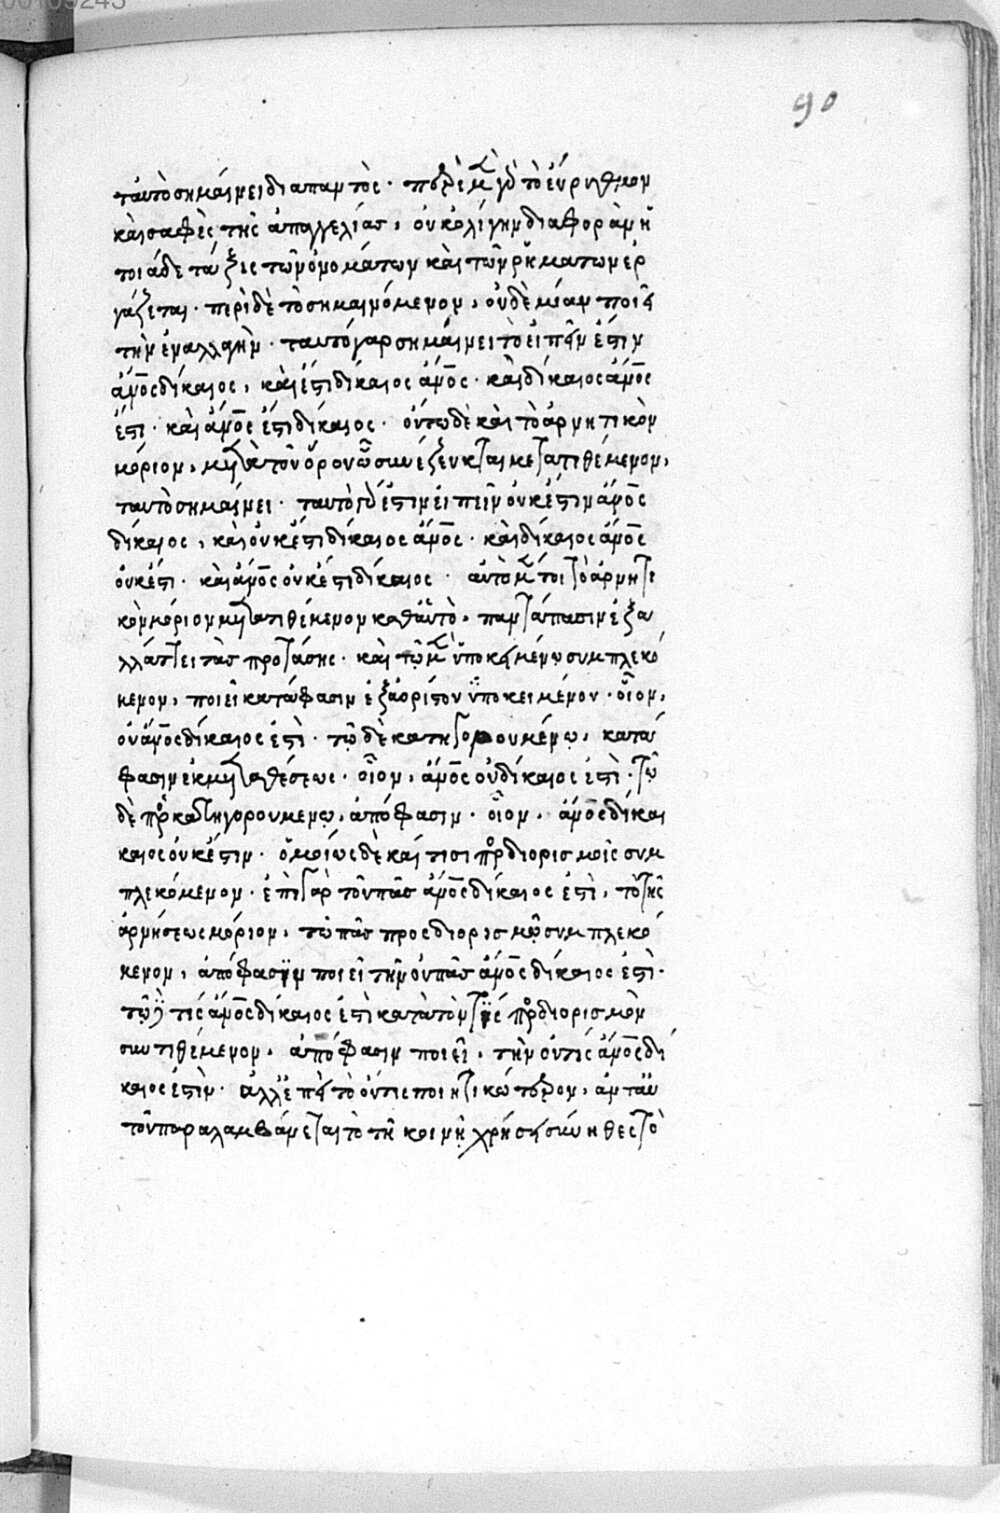 90
ταὐτὸ σημαίνει διαπαντὸς · περὶ μὲν γὰρ τὸ εὔρυθμον
καὶ σαφὲς τῆς ἀπαγγελίας, οὐκ ὀλίγην διαφορὰν ἡ
τοιάδε τάξις τῶν ὀνομάτων καὶ τῶν ῥημάτων ἐρ
γάζεται · περὶ δὲ τὸ σημαινόμενον, οὐδὲ μίαν ποιεῖ
τὴν ἐναλλαγὴν · ταυτὸ γὰρ σημαίνει τὸ εἰπεῖν ἔστιν
ἄνος δίκαιος, καὶ ἔστι δίκαιος ἄνος · καὶ δίκαιος ἄνος
ἔστι · καὶ ἄνος ἔστι δίκαιος · οὕτω δὲ καὶ τὸ ἀρνητικὸν
μόριον, μετὰ τοῦ ὅρου ὧ συνέζευκται μετατιθέμενον,
ταυτὸ σημαίνει · ταυτὸ γάρ ἐστιν εἰπεῖν οὐκ ἔστιν ἄνος
δίκαιος, καὶ οὐκ ἔστι δίκαιος ἄνος · καὶ δίκαιος ἄνος
οὐκ ἔστι · καὶ ἄνος οὐκ ἔστι δίκαιος · αὐτὸ μέντοι τὸ ἀρνητι
κὸν μόριον μετατιθέμενον καθ αὑτὸ, παντάπασιν ἐξα
λλάττει τὰς προτάσεις · καὶ τῶ μὲν ὑποκειμένω συμπλεκό
μενον, ποιεῖ κατάφασιν ἐξ ἀορίστου ὑποκειμένου · οἷον,
οὐκ ἄνος δίκαιος ἐστὶ · τῶ δὲ κατηγορουμένω, κατά
φασιν ἐκ μεταθέσεως · οἷον, ἄνος οὐ δίκαιος ἐστὶ · τῶ
δὲ προσκατηγορουμένω, ἀπόφασιν · οἷον, ἄνος δίκαι
καιος οὐκ ἔστιν · ὁμοίως δὲ καί τισι προσδιορισμοῖς συμ
πλεκόμενον · ἐπὶ γὰρ τοῦ πᾶς ἄνος δίκαιος ἐστὶ, τὸ τῆς
ἀρνήσεως μόριον, τῶ πᾶς προσδιορισμῶ συμπλεκό
μενον, ἀπόφασιν ποιεῖ τὴν οὐ πᾶς ἄνος δίκαιος ἐστὶ ·
τῶ δὲ τὶς ἄνος δίκαιος ἐστὶ κατὰ τὸν τὶς προσδιορισμὸν
συντιθέμενον, ἀπόφασιν ποιεῖ, τὴν οὔτις ἄνος δί
καιος ἐστὶν · ἀλλ ἐπεὶ τὸ οὔτις ποιητικώτερον, ἀντ αὐ
τοῦ παραλαμβάνεται τὸ τῆ κοινῆ χρήσει σύνηθες τὸ